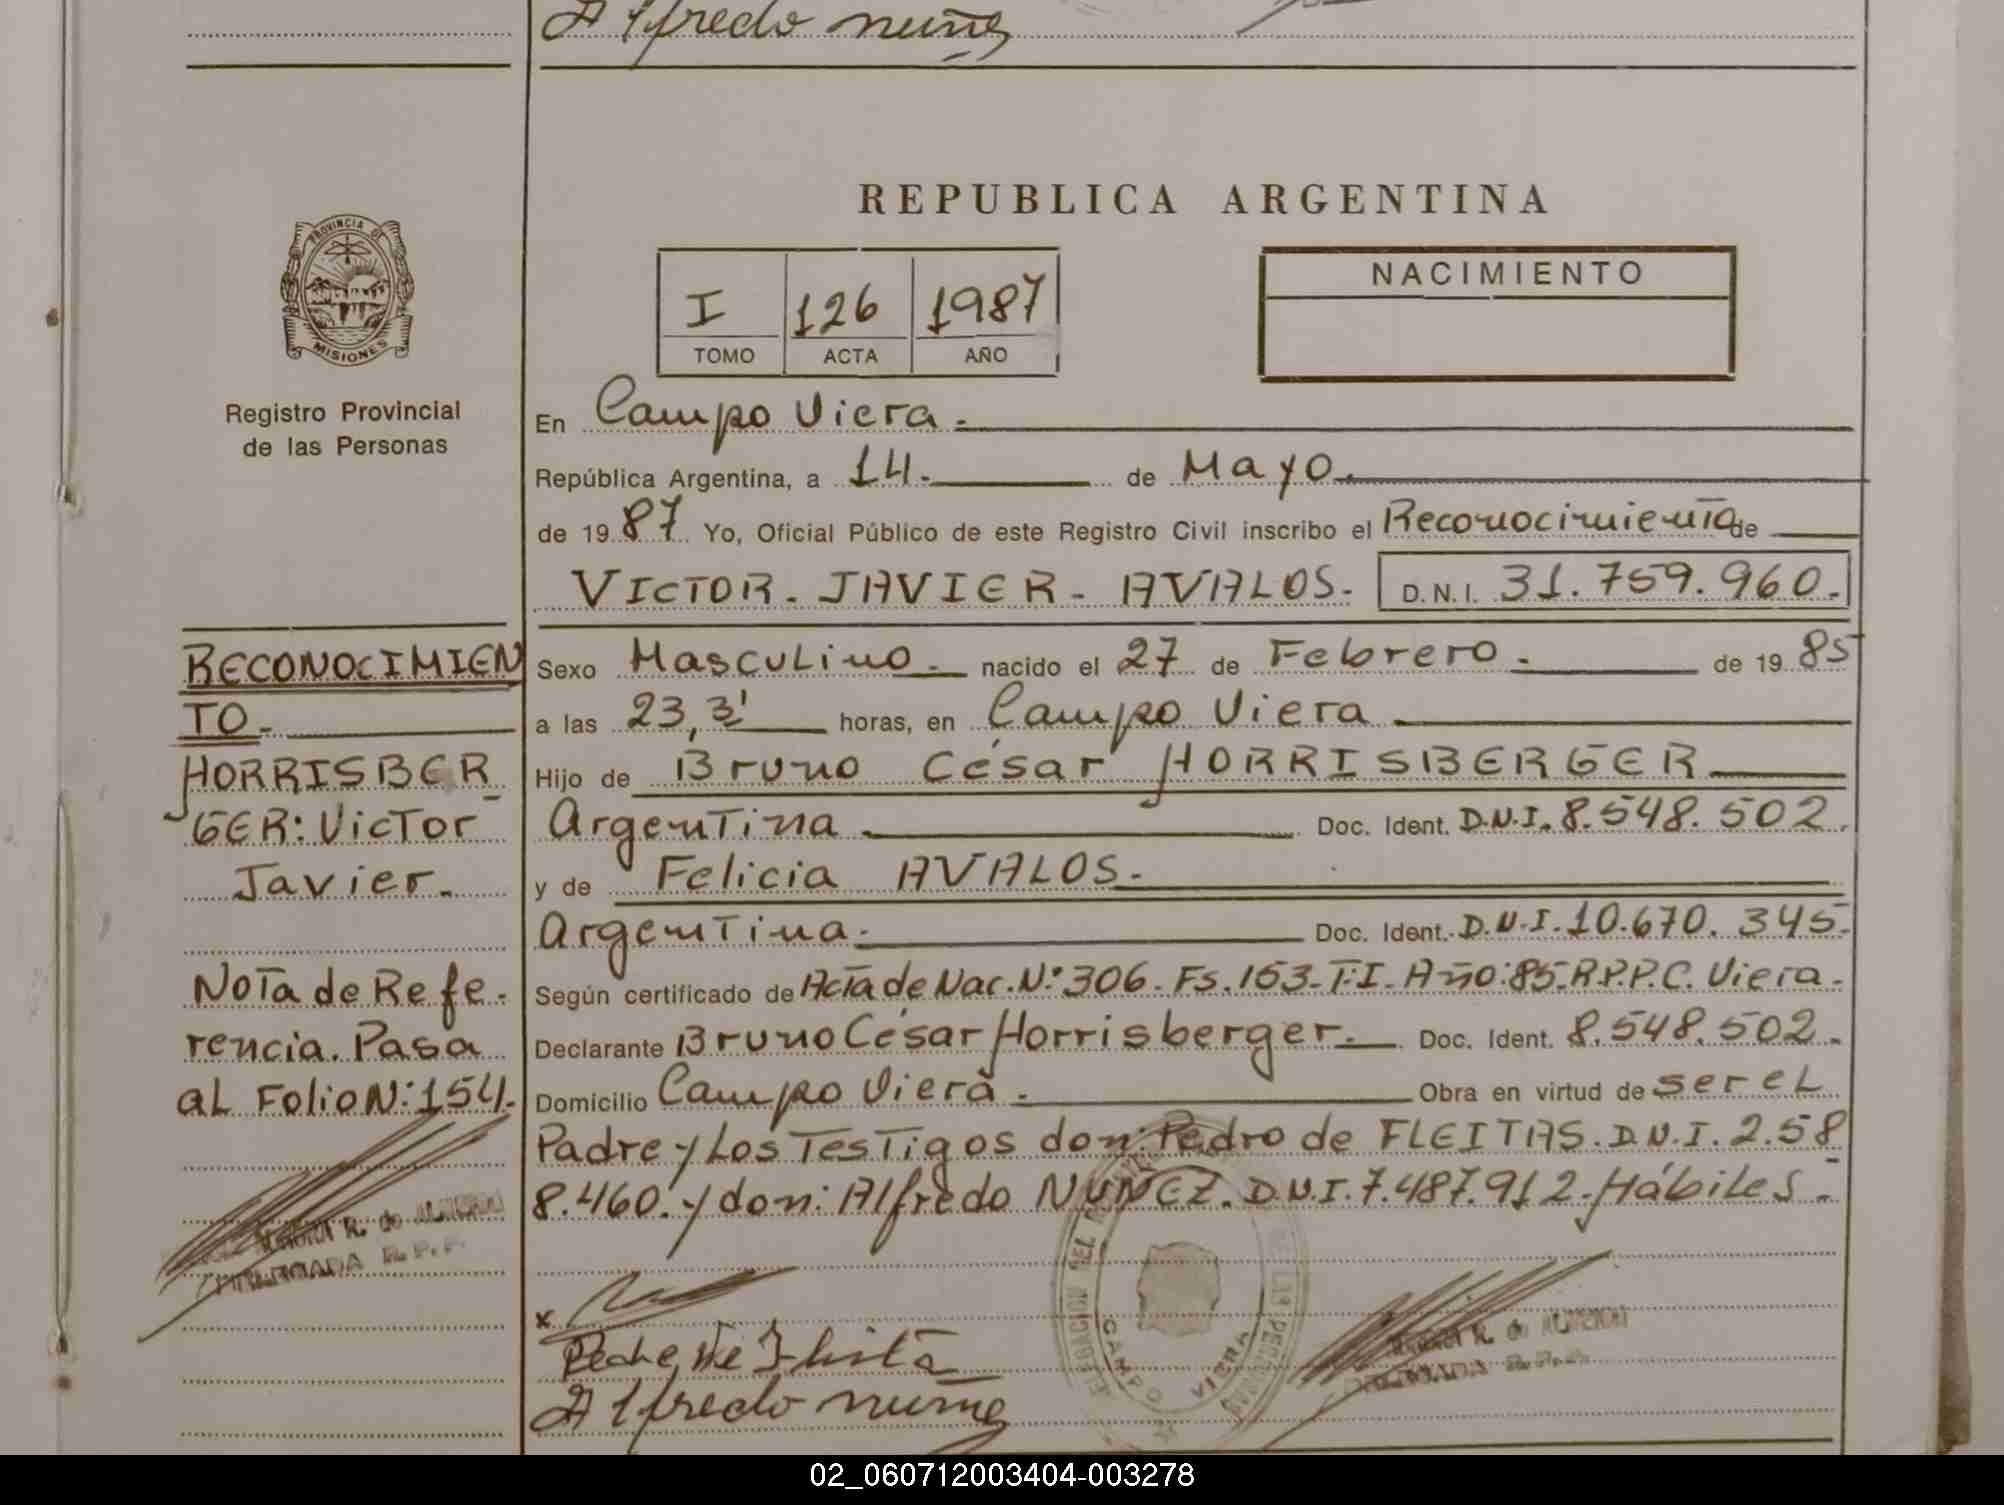 Alfredo nuñez
REPUBLICA ARGENTINA
PROVINCIA DE
MISIONES
Registro Provincial
de las Personas
I 126 1987
TOMO ACTA AÑO
NACIMIENTO
En Campo Viera.
República Argentina, a 14. de Mayo.
de 19 87 Yo, Oficial Público de este Registro Civil inscribo el Reconocimiento de
VICTOR. JAVIER. AVALOS. D.N.I. 31.759.960.
RECONOCIMIEN
TO.
HORRISBER
GER: Victor
Javier.
Nota de Refe.
rencia. Pasa
al Folio N: 154.
Sexo Masculino. nacido el 27 de Febrero. de 19 85
a las 23,3' horas, en Campo Viera
Hijo de Bruno César HORRISBERGER
Argentina Doc. Ident. D.N.I. 8.548.502.
y de Felicia AVALOS.
Argentina. Doc. Ident. D.N.I. 10.670.345.
Según certificado de Acta de Nac. N° 306. Fs. 153. T.I. Año: 85. R.P.P.C. Viera.
Declarante Bruno César Horrisberger. Doc. Ident. 8.548.502.
Domicilio Campo Viera. Obra en virtud de ser el
Padre y Los Testigos don: Pedro de FLEITAS. D.N.I. 2.58
8.460. y don: Alfredo NUÑEZ. D.N.I. 7.487.912. Hábiles.
R. de
R.P.P.
x
Alfredo nuñez
CAMPO VIERA
R. de
02_060712003404-003278